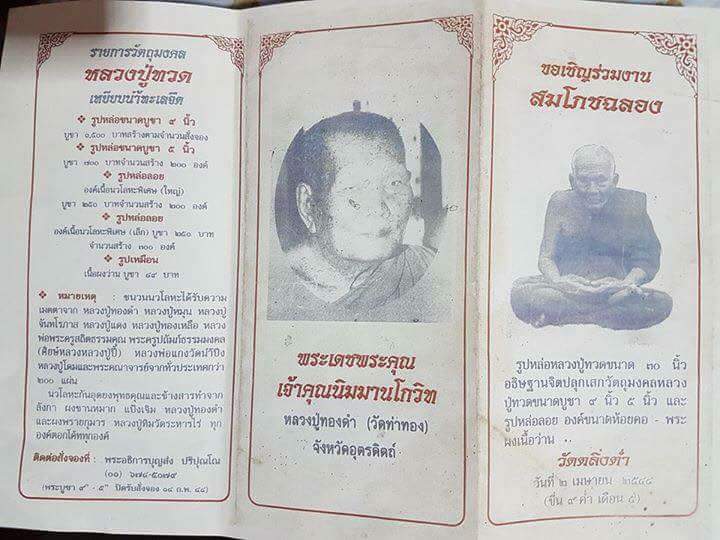 รายการวัตถุมงคล
หลวงปู่ทวด
เหยียบน้ำทะเลจืด
❖ รูปหล่อขนาดบูชา ๙ นิ้ว
บูชา ๑,๕๐๐ บาทสร้างตามจำนวนสั่งจอง
❖ รูปหล่อขนาดบูชา ๕ นิ้ว
บูชา ๗๐๐ บาทจำนวนสร้าง ๒๐๐ องค์
❖ รูปหล่อลอย
องค์เนื้อนวโลหะพิเศษ (ใหญ่)
บูชา ๒๕๐ บาทจำนวนสร้าง ๒๐๐ องค์
❖ รูปหล่อลอย
องค์เนื้อนวโลหะพิเศษ (เล็ก) บูชา ๒๕๐ บาท
จำนวนสร้าง ๓๐๐ องค์
❖ รูปเหมือน
เนื้อผงว่าน บูชา ๔๙ บาท
❖ หมายเหตุ : ชนวนนวโลหะได้รับความ
เมตตาจาก หลวงปู่ทองดำ หลวงปู่หมุน หลวงปู่
จันทโรภาส หลวงปู่แดง หลวงปู่ทองเหลือ หลวง
พ่อพระครูสถิตธรรมคุณ พระครูปลัมภ์ธรรมมงคล
(ศิษย์หลวงหลวงปู่ปี้) หลวงพ่อแกงวัดนำวีปิง
หลวงปู่โฉมและพระคณาจารย์จากทั่วประเทศกว่า
๒๐๐ แผ่น
นวโลหะก้นอุดยงพุทธคุณและข้างสารทำจาก
ลังกา ผงขานหมาก แป้งเจิม หลวงปู่ทองดำ
และผงพรายกุมาร หลวงปู่ทิมวัดระหารไร่ ทุก
องค์ตอกโค้ททุกองค์
ติดต่อสั่งจองที่ : พระอธิการบุญส่ง ปริปุณโณ
(๐๑) ๖๗๔-๕๐๗๙
(พระบูชา ๙" - ๕" ปิดรับสั่งจอง ๑๔ ก.พ. ๔๔)
พระเดชพระคุณ
เจ้าคุณนิมมานโกวิท
หลวงปู่ทองดำ (วัดท่าทอง)
จังหวัดอุตรดิตถ์
ขอเชิญร่วมงาน
สมโภชฉลอง
รูปหล่อหลวงปู่ทวดขนาด ๓๐ นิ้ว
อธิษฐานจิตปลุกเสกวัตถุมงคลหลวง
ปู่ทวดขนาดบูชา ๙ นิ้ว ๕ นิ้ว และ
รูปหล่อลอย องค์ขนาดห้อยคอ - พระ
ผงเนื้อว่าน ..
วัดตลิ่งต่ำ
วันที่ ๒ เมษายน ๒๕๔๔
(ขึ้น ๙ ค่ำ เดือน ๕)